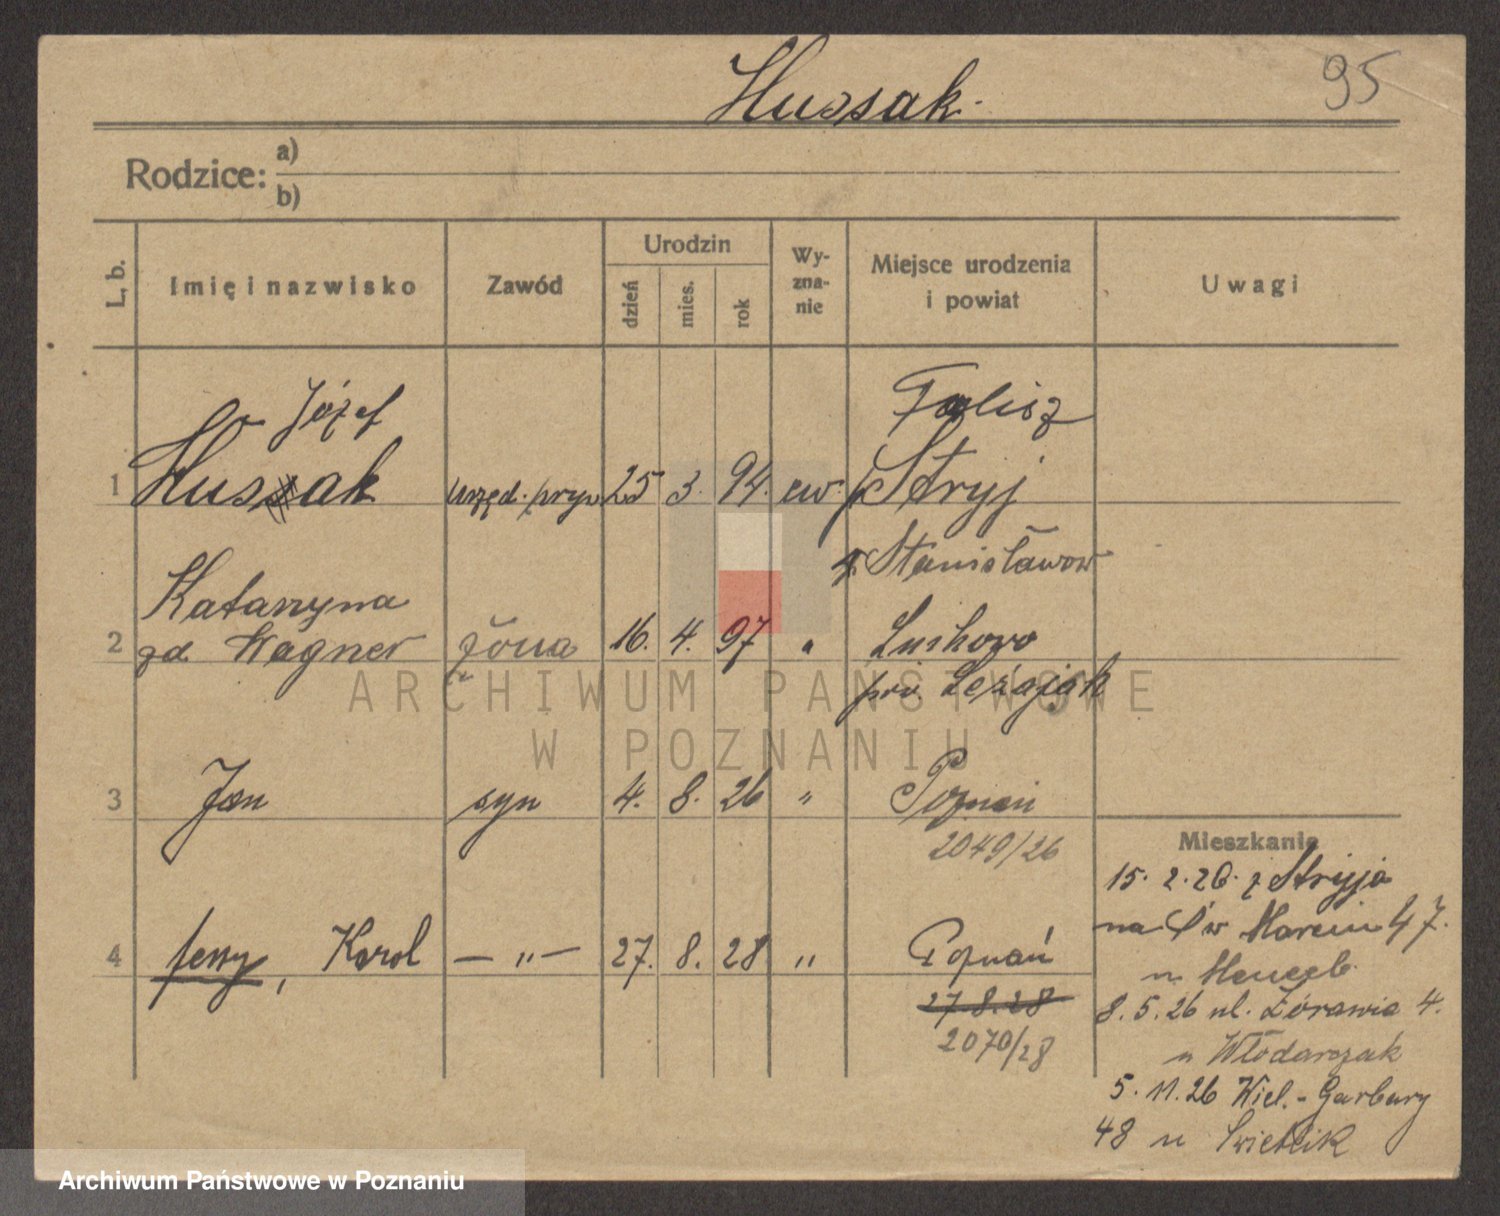 Hussak.
95
Rodzice: a)
b)
L. b.
Imię i nazwisko
Zawód
Urodzin
dzień
mies.
rok
Wy-
zna-
nie
Miejsce urodzenia
i powiat
Uwagi
Józef
Falisz
1 Hussak urzęd. pryw. 25 3. 94. ew. p. Stryj
Katarzyna
Stanisławow
2 zd. Wagner żona 16. 4. 97 "
pow. Leżajsk
3 Jan syn 4. 8. 26 " Poznań
2049/26
Mieszkanie
15. 2. 26. z Stryja
na Św Marcin 47.
4 Jerzy, Karol — " — 27. 8. 28 " Poznań
27.8.28
2070/28
8. 5. 26 ul. Żórawia 4.
u Włodarczak
5. 11. 26 Wiel.- Garbary
48 u Swietlik
ARCHIWUM PAŃSTWOWE
W POZNANIU
Archiwum Państwowe w Poznaniu